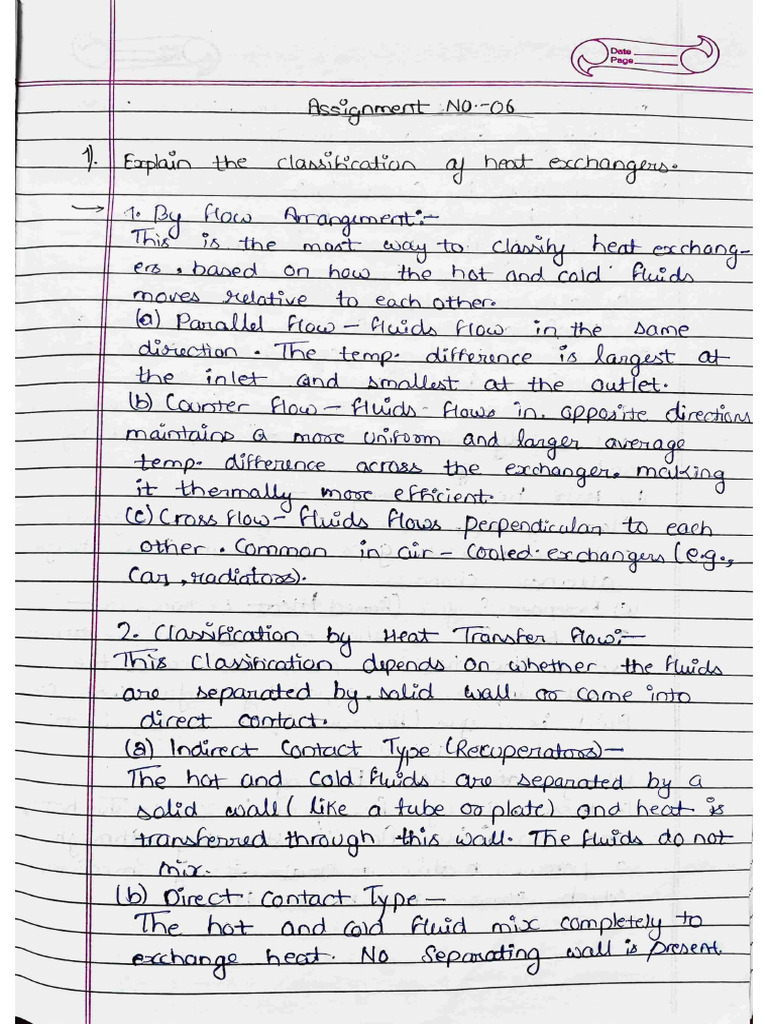 Date
Page
Assignment No.-06
1). Explain the classification of heat exchangers.
→ 1. By Flow Arrangement:-
This is the most way to classify heat exchang-
ers, based on how the hot and cold fluids
moves relative to each other.
(a) Parallel flow - fluids flow in the same
direction. The temp. difference is largest at
the inlet and smallest at the outlet.
(b) Counter flow - fluids flows in opposite directions
maintains a more uniform and larger average
temp. difference across the exchanger, making
it thermally more efficient.
(c) Cross flow - fluids flows perpendicular to each
other. Common in air-cooled exchangers (e.g.,
Car, radiators).
2. Classification by Heat Transfer flow:-
This classification depends on whether the fluids
are separated by solid wall or come into
direct contact.
(a) Indirect Contact Type (Recuperators)-
The hot and cold fluids are separated by a
solid wall (like a tube or plate) and heat is
transferred through this wall. The fluids do not
mix.
(b) Direct Contact Type -
The hot and cold fluid mix completely to
exchange heat. No separating wall is present.